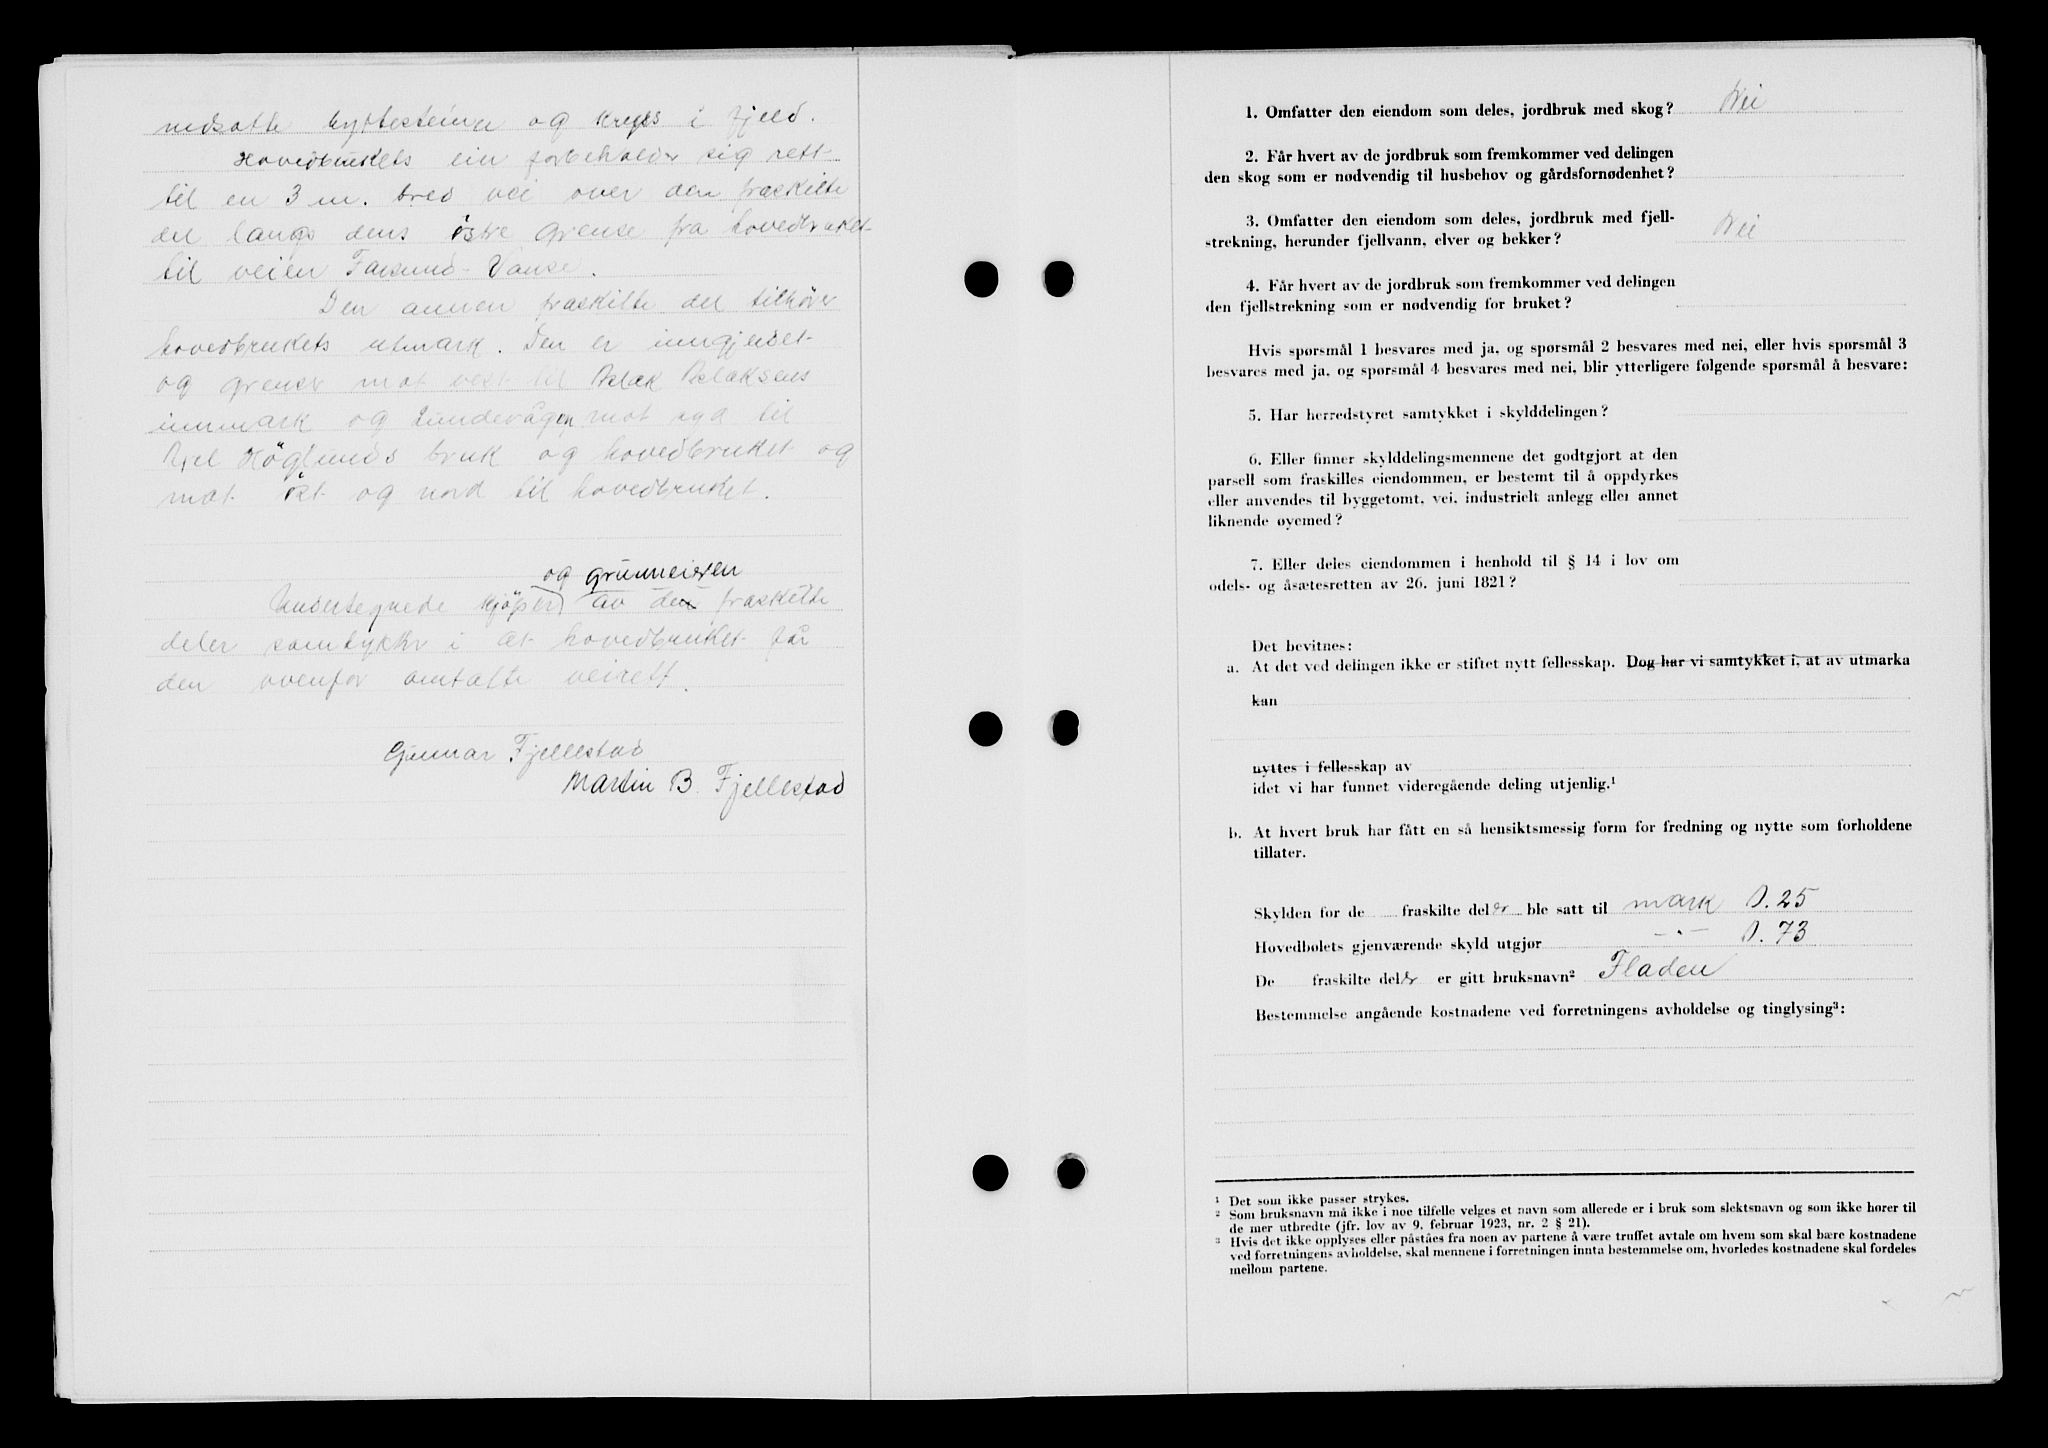 nedsatte byttesteiner og kryss i fjeld.
Hovedbrukets eier forbeholder sig rett
til en 3 m. bred vei over den fraskilte
del langs dens östre grense fra hovedbruket
til veien Farsund - Vanse.
Den annen fraskilte del tilhörer
hovedbrukets utmark. Den er inngjerdet
og grenser mot vest til Aslak Aslaksens
innmark og Lundevågen, mot syd til
Axel Höglunds bruk og hovedbruket og
mot öst og nord til hovedbruket.
og grunneieren
Undertegnede kjöper av den fraskilte
deler samtykker i at hovedbruket får
den ovenfor omtalte veirett.
Gunnar Fjellestad
Martin B. Fjellestad
1. Omfatter den eiendom som deles, jordbruk med skog? Nei
2. Får hvert av de jordbruk som fremkommer ved delingen
den skog som er nødvendig til husbehov og gårdsfornødenhet?
3. Omfatter den eiendom som deles, jordbruk med fjell-
strekning, herunder fjellvann, elver og bekker? Nei
4. Får hvert av de jordbruk som fremkommer ved delingen
den fjellstrekning som er nødvendig for bruket?
Hvis spørsmål 1 besvares med ja, og spørsmål 2 besvares med nei, eller hvis spørsmål 3
besvares med ja, og spørsmål 4 besvares med nei, blir ytterligere følgende spørsmål å besvare:
5. Har herredstyret samtykket i skylddelingen?
6. Eller finner skylddelingsmennene det godtgjort at den
parsell som fraskilles eiendommen, er bestemt til å oppdyrkes
eller anvendes til byggetomt, vei, industrielt anlegg eller annet
liknende øyemed?
7. Eller deles eiendommen i henhold til § 14 i lov om
odels- og åsætesretten av 26. juni 1821?
Det bevitnes:
a. At det ved delingen ikke er stiftet nytt fellesskap. Dog har vi samtykket i, at av utmarka
kan
nyttes i fellesskap av
idet vi har funnet videregående deling utjenlig.¹
b. At hvert bruk har fått en så hensiktsmessig form for fredning og nytte som forholdene
tillater.
Skylden for de fraskilte deler ble satt til mark 0.25
Hovedbølets gjenværende skyld utgjør -"- 0.73
De fraskilte deler er gitt bruksnavn² Fladen
Bestemmelse angående kostnadene ved forretningens avholdelse og tinglysing³:
¹ Det som ikke passer strykes.
² Som bruksnavn må ikke i noe tilfelle velges et navn som allerede er i bruk som slektsnavn og som ikke hører til
de mer utbredte (jfr. lov av 9. februar 1923, nr. 2 § 21).
³ Hvis det ikke opplyses eller påståes fra noen av partene å være truffet avtale om hvem som skal bære kostnadene
ved forretningens avholdelse, skal mennene i forretningen innta bestemmelse om, hvorledes kostnadene skal fordeles
mellom partene.